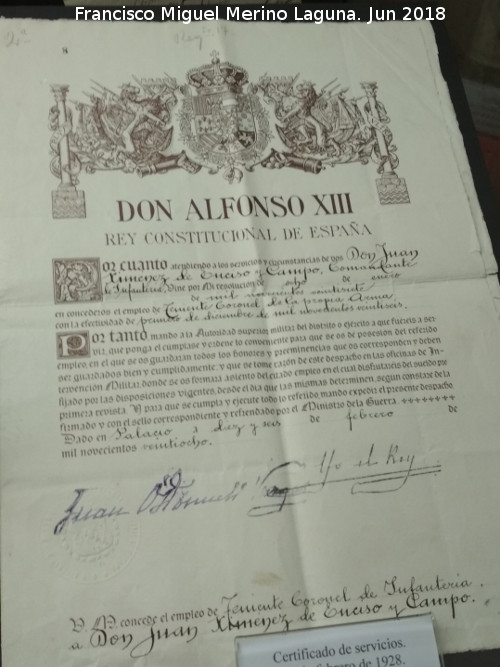 Francisco Miguel Merino Laguna. Jun 2018
8
DON ALFONSO XIII
REY CONSTITUCIONAL DE ESPAÑA
Por cuanto atendiendo a los servicios y circunstancias de vos Don Juan
Ximenez de Enciso y Campo, Comandante
de Infantería, vine por Mi resolución de ocho de enero
de mil novecientos veintisiete
en concederos el empleo de Teniente Coronel de la propia Arma
con la efectividad de primero de diciembre de mil novecientos veintiseis.
Por tanto mando a la Autoridad superior militar del distrito o ejército a que fuereis a ser-
vir, que ponga el cúmplase y ordene lo conveniente para que se os dé posesión del referido
empleo, en el que se os guardarán todos los honores y preeminencias que os corresponden y deben
ser guardados bien y cumplidamente, y que se tome razón de este despacho en las oficinas de In-
tervención Militar donde se os formará asiento del citado empleo en el cual disfrutaréis del sueldo pre-
fijado por las disposiciones vigentes, desde el día que las mismas determinen, según conste de la
primera revista. Y para que se cumpla y ejecute todo lo referido mando expedir el presente despacho
firmado y con el sello correspondiente y refrendado por el Ministro de la Guerra.
Dado en Palacio a diez y seis de febrero de
mil novecientos veintiocho.
Yo el Rey
Juan O'Donnell
V. M. concede el empleo de Teniente Coronel de Infantería,
a Don Juan Ximenez de Enciso y Campo.
Certificado de servicios.
febrero de 1928.